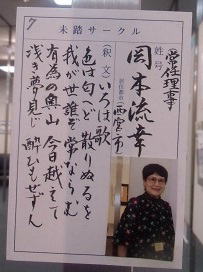 7
未踏サークル
常任理事
姓号
岡本流幸
居住都市
西宮市
(釈文)いろは歌
色は匂へど 散りぬるを
我が世誰ぞ 常ならむ
有為の奥山 今日越えて
浅き夢見じ 酔ひもせずん